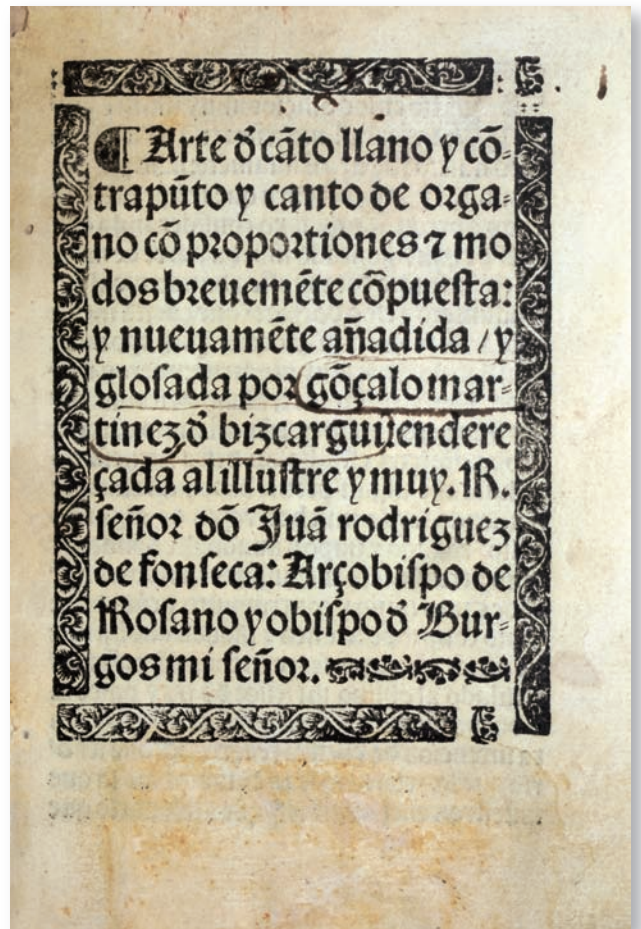 ¶ Arte d̄ cāto llano y cō-
trapūto y canto de orga-
no cō proportiones ⁊ mo
dos breuemēte cōpuesta:
y nueuamēte añadida / y
glosada por gōçalo mar-
tinez d̄ bizcargui / endere
çada al illustre y muy. R.
señor dō Juā rodriguez
de fonseca: Arçobispo de
Rosano y obispo d̄ Bur-
gos mi señor.